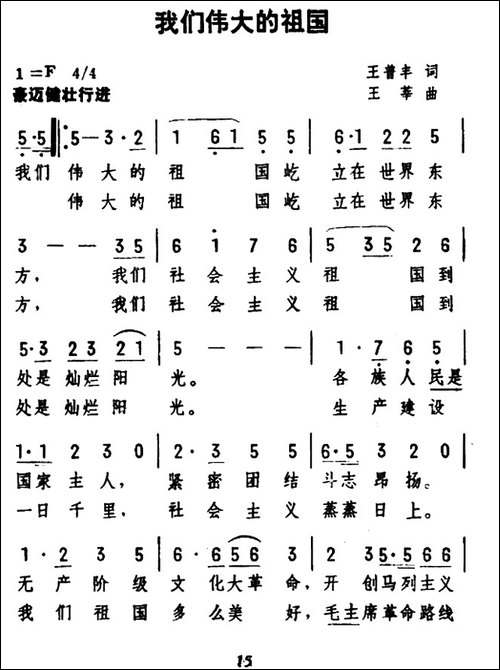 我们伟大的祖国
1=F 4/4
王普丰 词
豪迈健壮行进
王莘 曲
5·5 5—3·2 | 1 61 5 5 | 6·1 22 5 |
我们 伟大的 祖 国屹 立在世界东
伟大的 祖 国屹 立在世界东
3 — — 35 | 6 1 7 6 | 5 35 2 6 |
方， 我们 社会主义 祖 国到
方， 我们 社会主义 祖 国到
5·3 23 21 | 5 — — — | 1·7 6 5 |
处是灿烂阳 光。 各族人民是
处是灿烂阳 光。 生产建设
1·1 2 3 0 | 2·3 5 5 | 6·5 3 2 0 |
国家主人， 紧密团结 斗志昂扬。
一日千里， 社会主义 蒸蒸日上。
1·2 3 5 | 6·6 56 3 | 2 35·5 66 |
无产阶级 文化大革命，开 创马列主义
我们祖国 多么美 好，毛主席革命路线
15